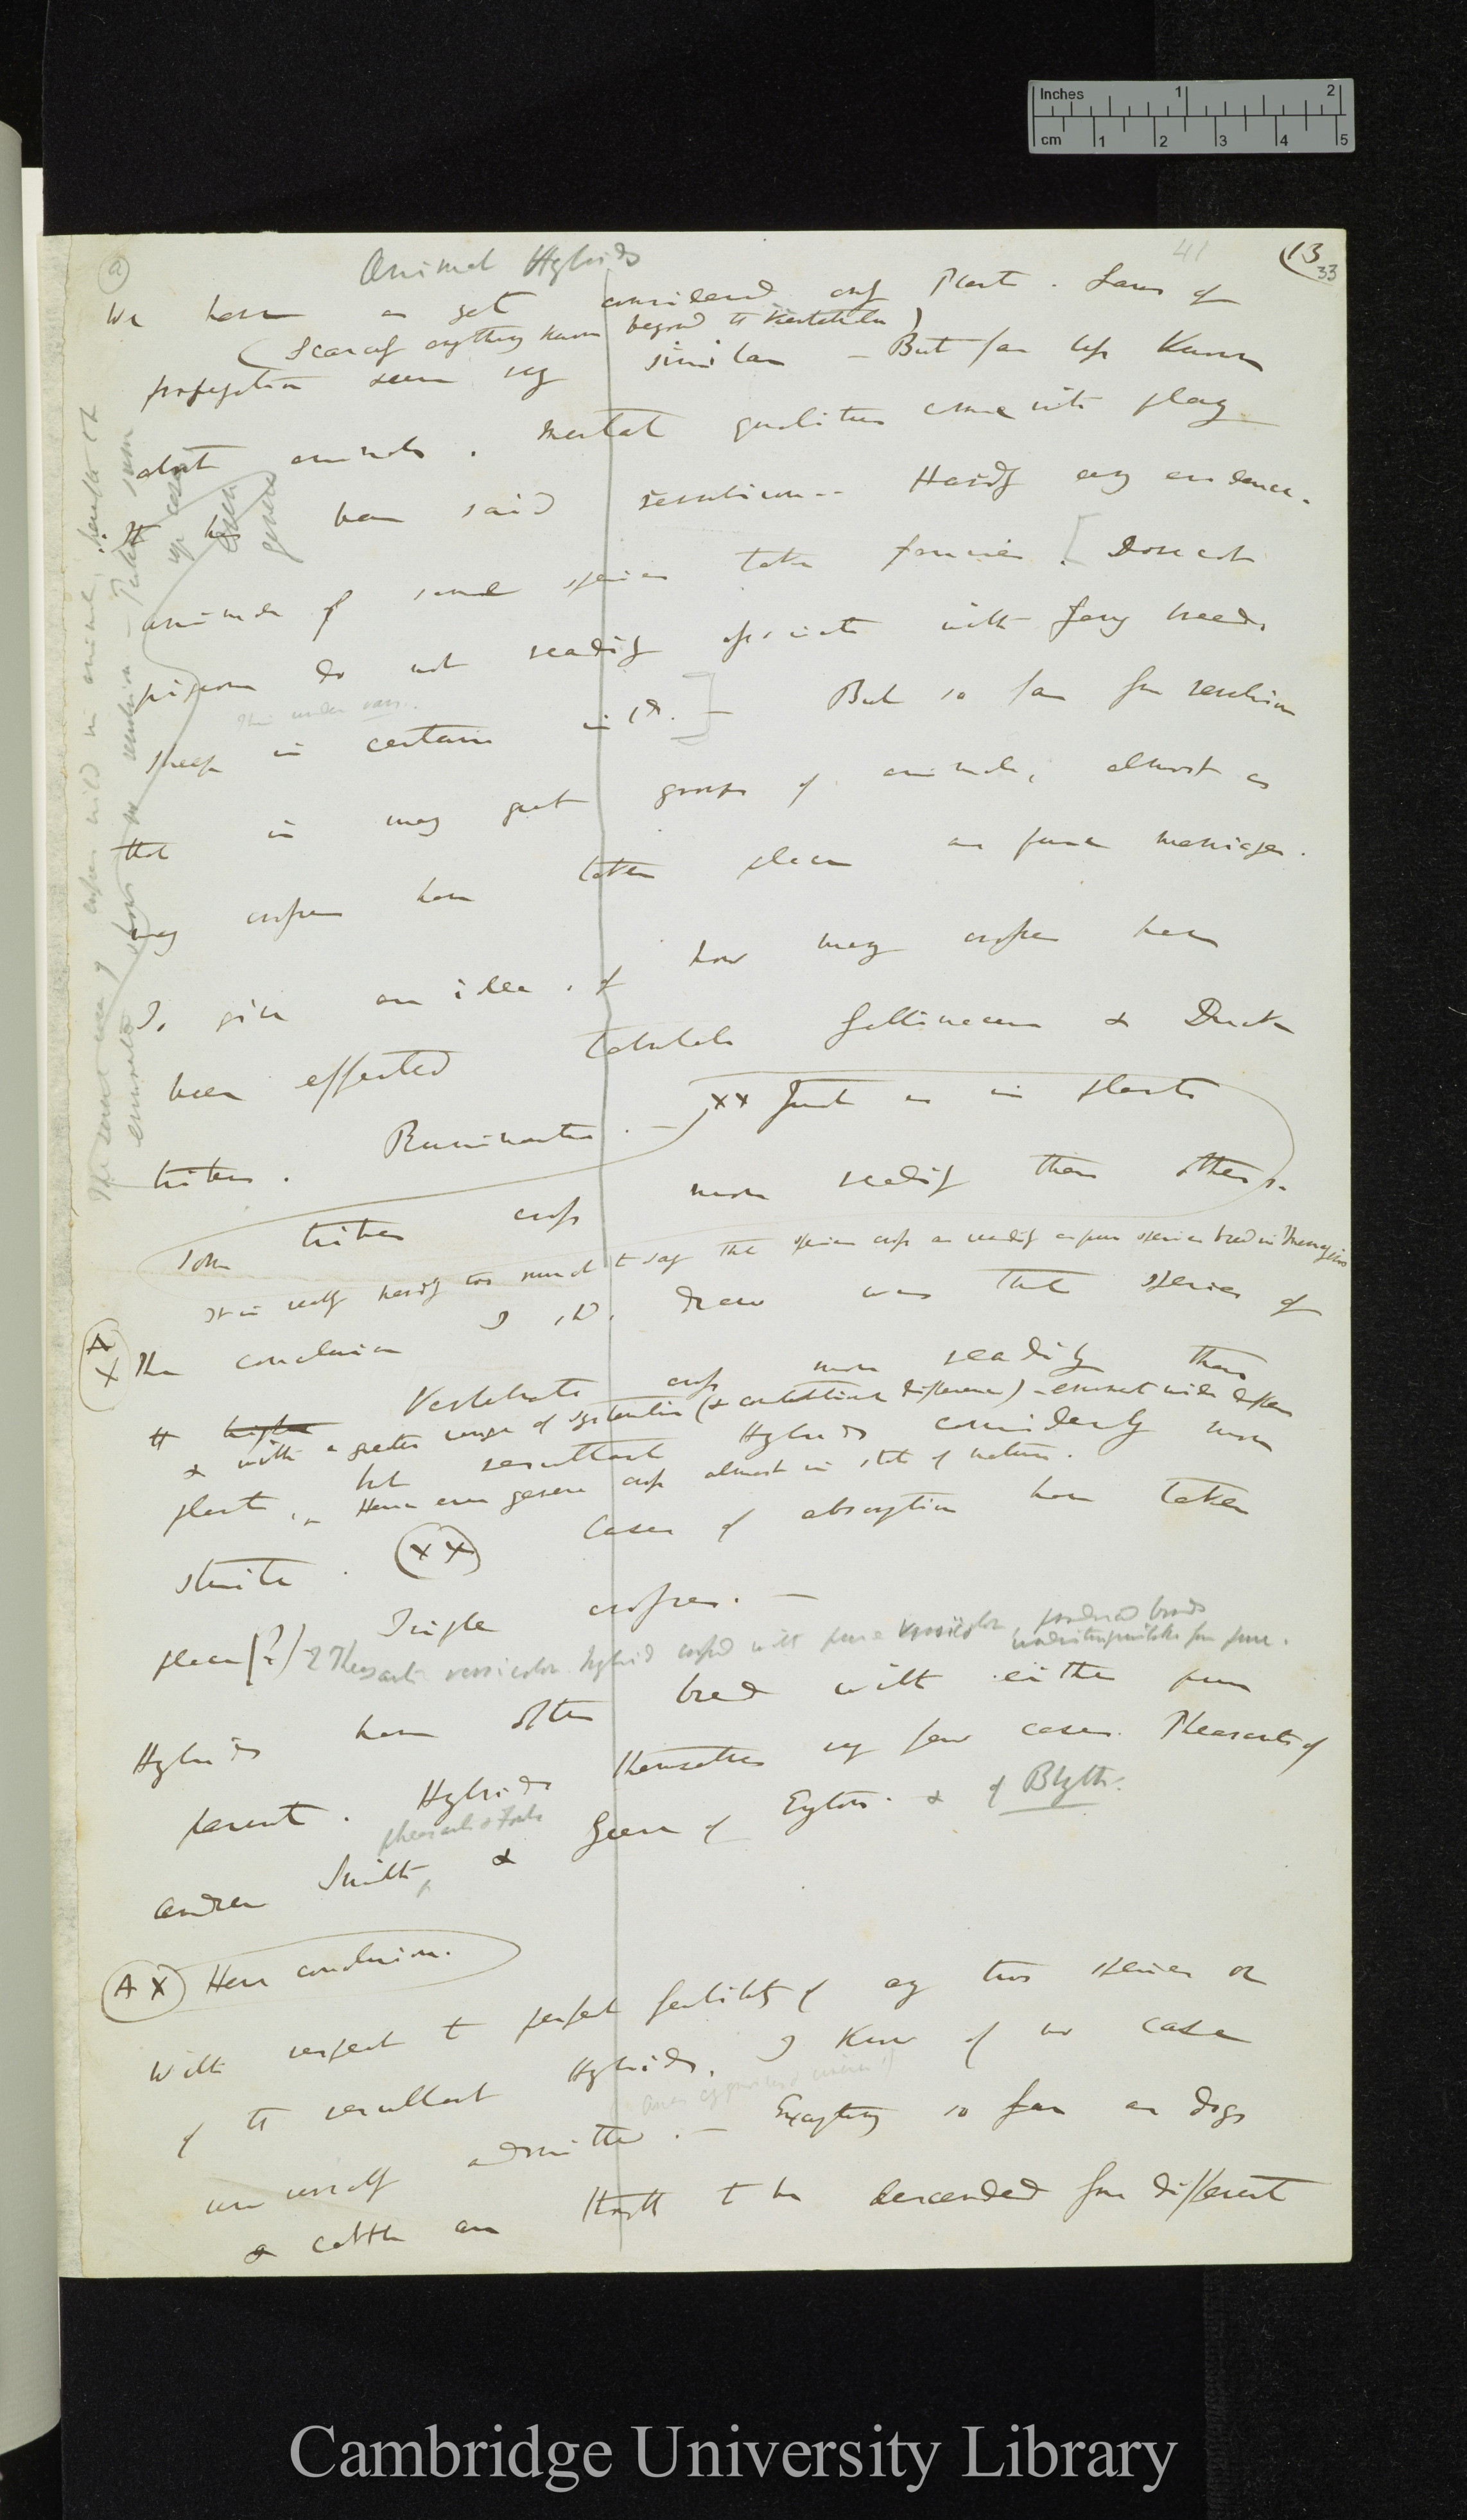 Inches 1 2
cm 1 2 3 4 5
41
(13
33
(a)
Animal Hybrids
We have as yet considered only Plants. Laws of
(Scarcely anything known beyond the Vertebrata)
propagation seem very similar — But far less known
about animals. Mental qualities come into play
It has been said revulsion-- Hardly any evidence.
animals of same species take fancies. [Dovecot
pigeons do not readily associate with fancy breeds
sheep in certain
]— But so far from revulsion
that in many great groups of animals, almost as
many crosses have taken place as pure marriages.
To give an idea of how many crosses have
been effected tabulate Gallinaceae & Duck
tribes. Ruminantia. — XX Just as in plants
some tribes cross more readily than others.
It is really hardly too much to say that species cross as readily as pure species breed in Menageries
(A X) The conclusion I shd. draw was that species of
the higher Vertebrata cross more readily than
& with a greater range of systematic (& constitutional difference) —
plants, but resultant Hybrids considerably more
Hence even genera cross almost in state of nature.
sterile. (XX) Cases of absorption have taken
place (?) Triple crosses. —
Pheasant versicolor hybrid crossed with pure versicolor, produced birds
undistinguishable from pure.
Hybrids have often bred with either pure
parent. Hybrids themselves very few cases. Pheasants of
pheasants & Fowls
Andrew Smith, & Geese of Eyton. & of Blyth.
(A X) Here conclusion.
With respect to perfect fertility of any two species or
of the resultant Hybrids, I know of no case
universally admitted. — Excepting so far as dogs
& cattle are thought to be descended from different
Cambridge University Library